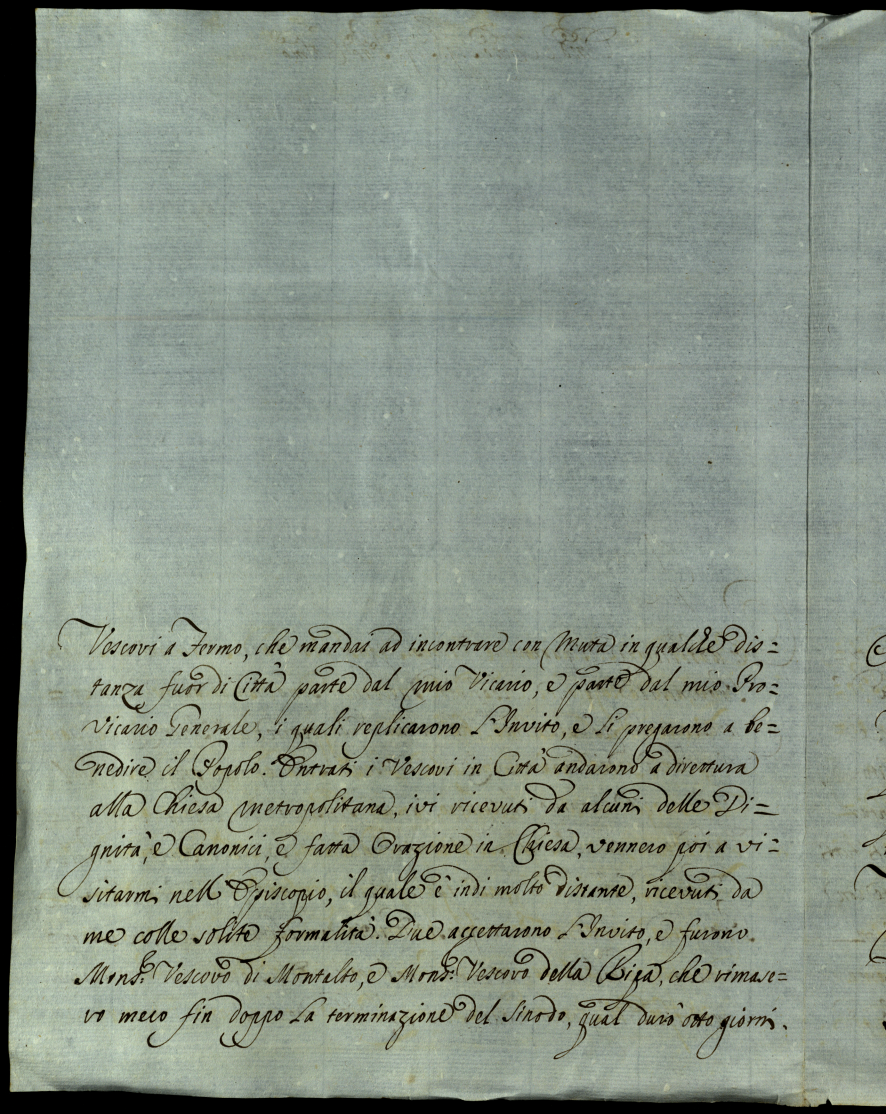 Vescovi a Fermo, che mandai ad incontrare con Muta in qualche dis=
tanza fuor di Città parte dal mio Vicario, e parte dal mio Pro=
Vicario Generale, i quali replicarono l'Invito, e li pregarono a be=
nedire il Popolo. Entrati i Vescovi in Città andarono a direttura
alla Chiesa metropolitana, ivi ricevuti da alcuni delle Di=
gnità, e Canonici, e fatta Orazione in Chiesa, vennero poi a vi=
sitarmi nell'Episcopio, il quale è indi molto distante, ricevuti da
me colle solite formalità. Due accettarono l'Invito, e furono
Mons.r Vescovo di Montalto, e Mons.r Vescovo della Ripa, che rimase=
ro meco fin doppo la terminazione del Sinodo, qual durò otto giorni.